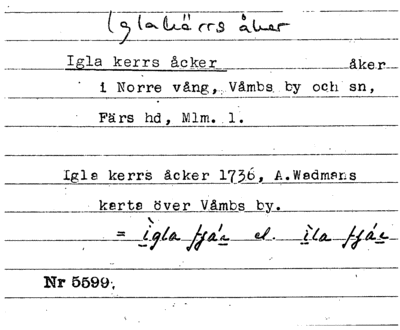 Iglakärrs åker
Igla kerrs åcker åker
i Norre vång, Våmbs by och sn,
Färs hd, Mlm. l.
Igla kerrs åcker 1736, A.Wadmans
karta över Våmbs by.
= ìgla fjár el. ìla fjár
Nr 5599.